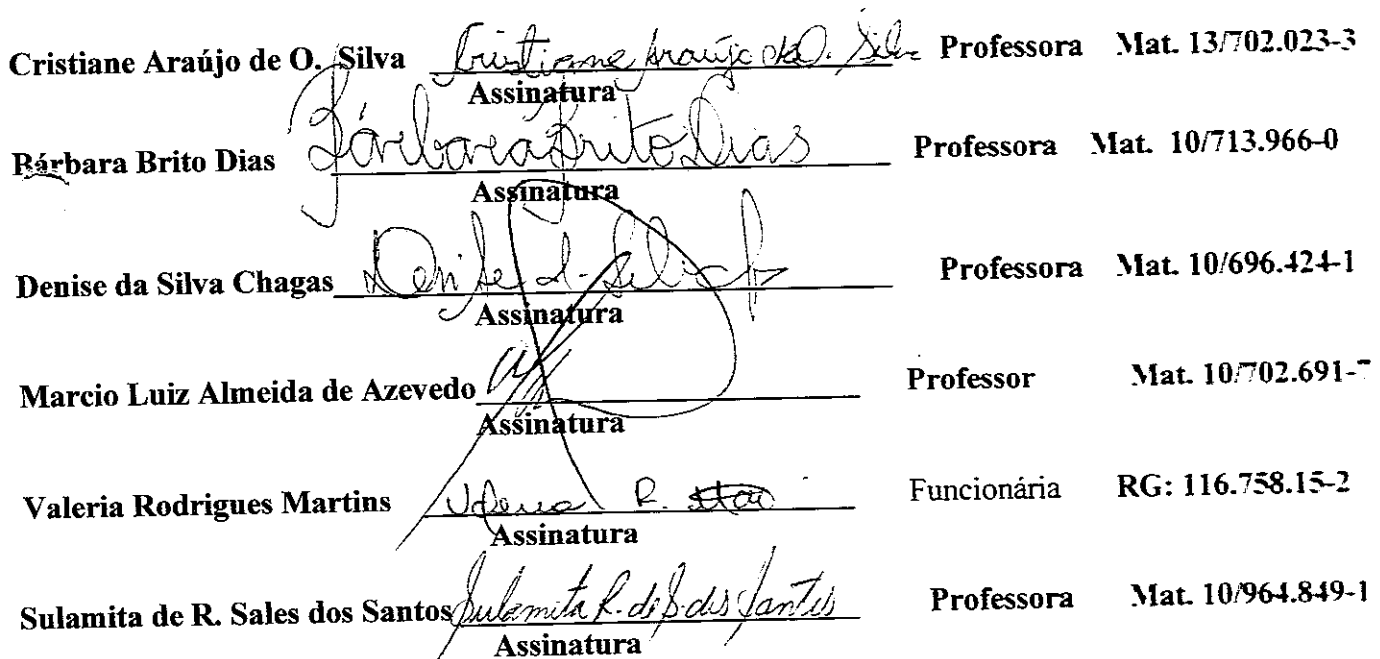 Cristiane Araújo de O. Silva Cristiane Araújo de O. Silva Professora Mat. 13/702.023-3
Assinatura
Bárbara Brito Dias Bárbara Brito Dias Professora Mat. 10/713.966-0
Assinatura
Denise da Silva Chagas Denise d. Silva Professora Mat. 10/696.424-1
Assinatura
Marcio Luiz Almeida de Azevedo Professor Mat. 10/702.691-7
Assinatura
Valeria Rodrigues Martins Valeria R. Funcionária RG: 116.758.15-2
Assinatura
Sulamita de R. Sales dos Santos Sulamita R. de S. dos Santos Professora Mat. 10/964.849-1
Assinatura